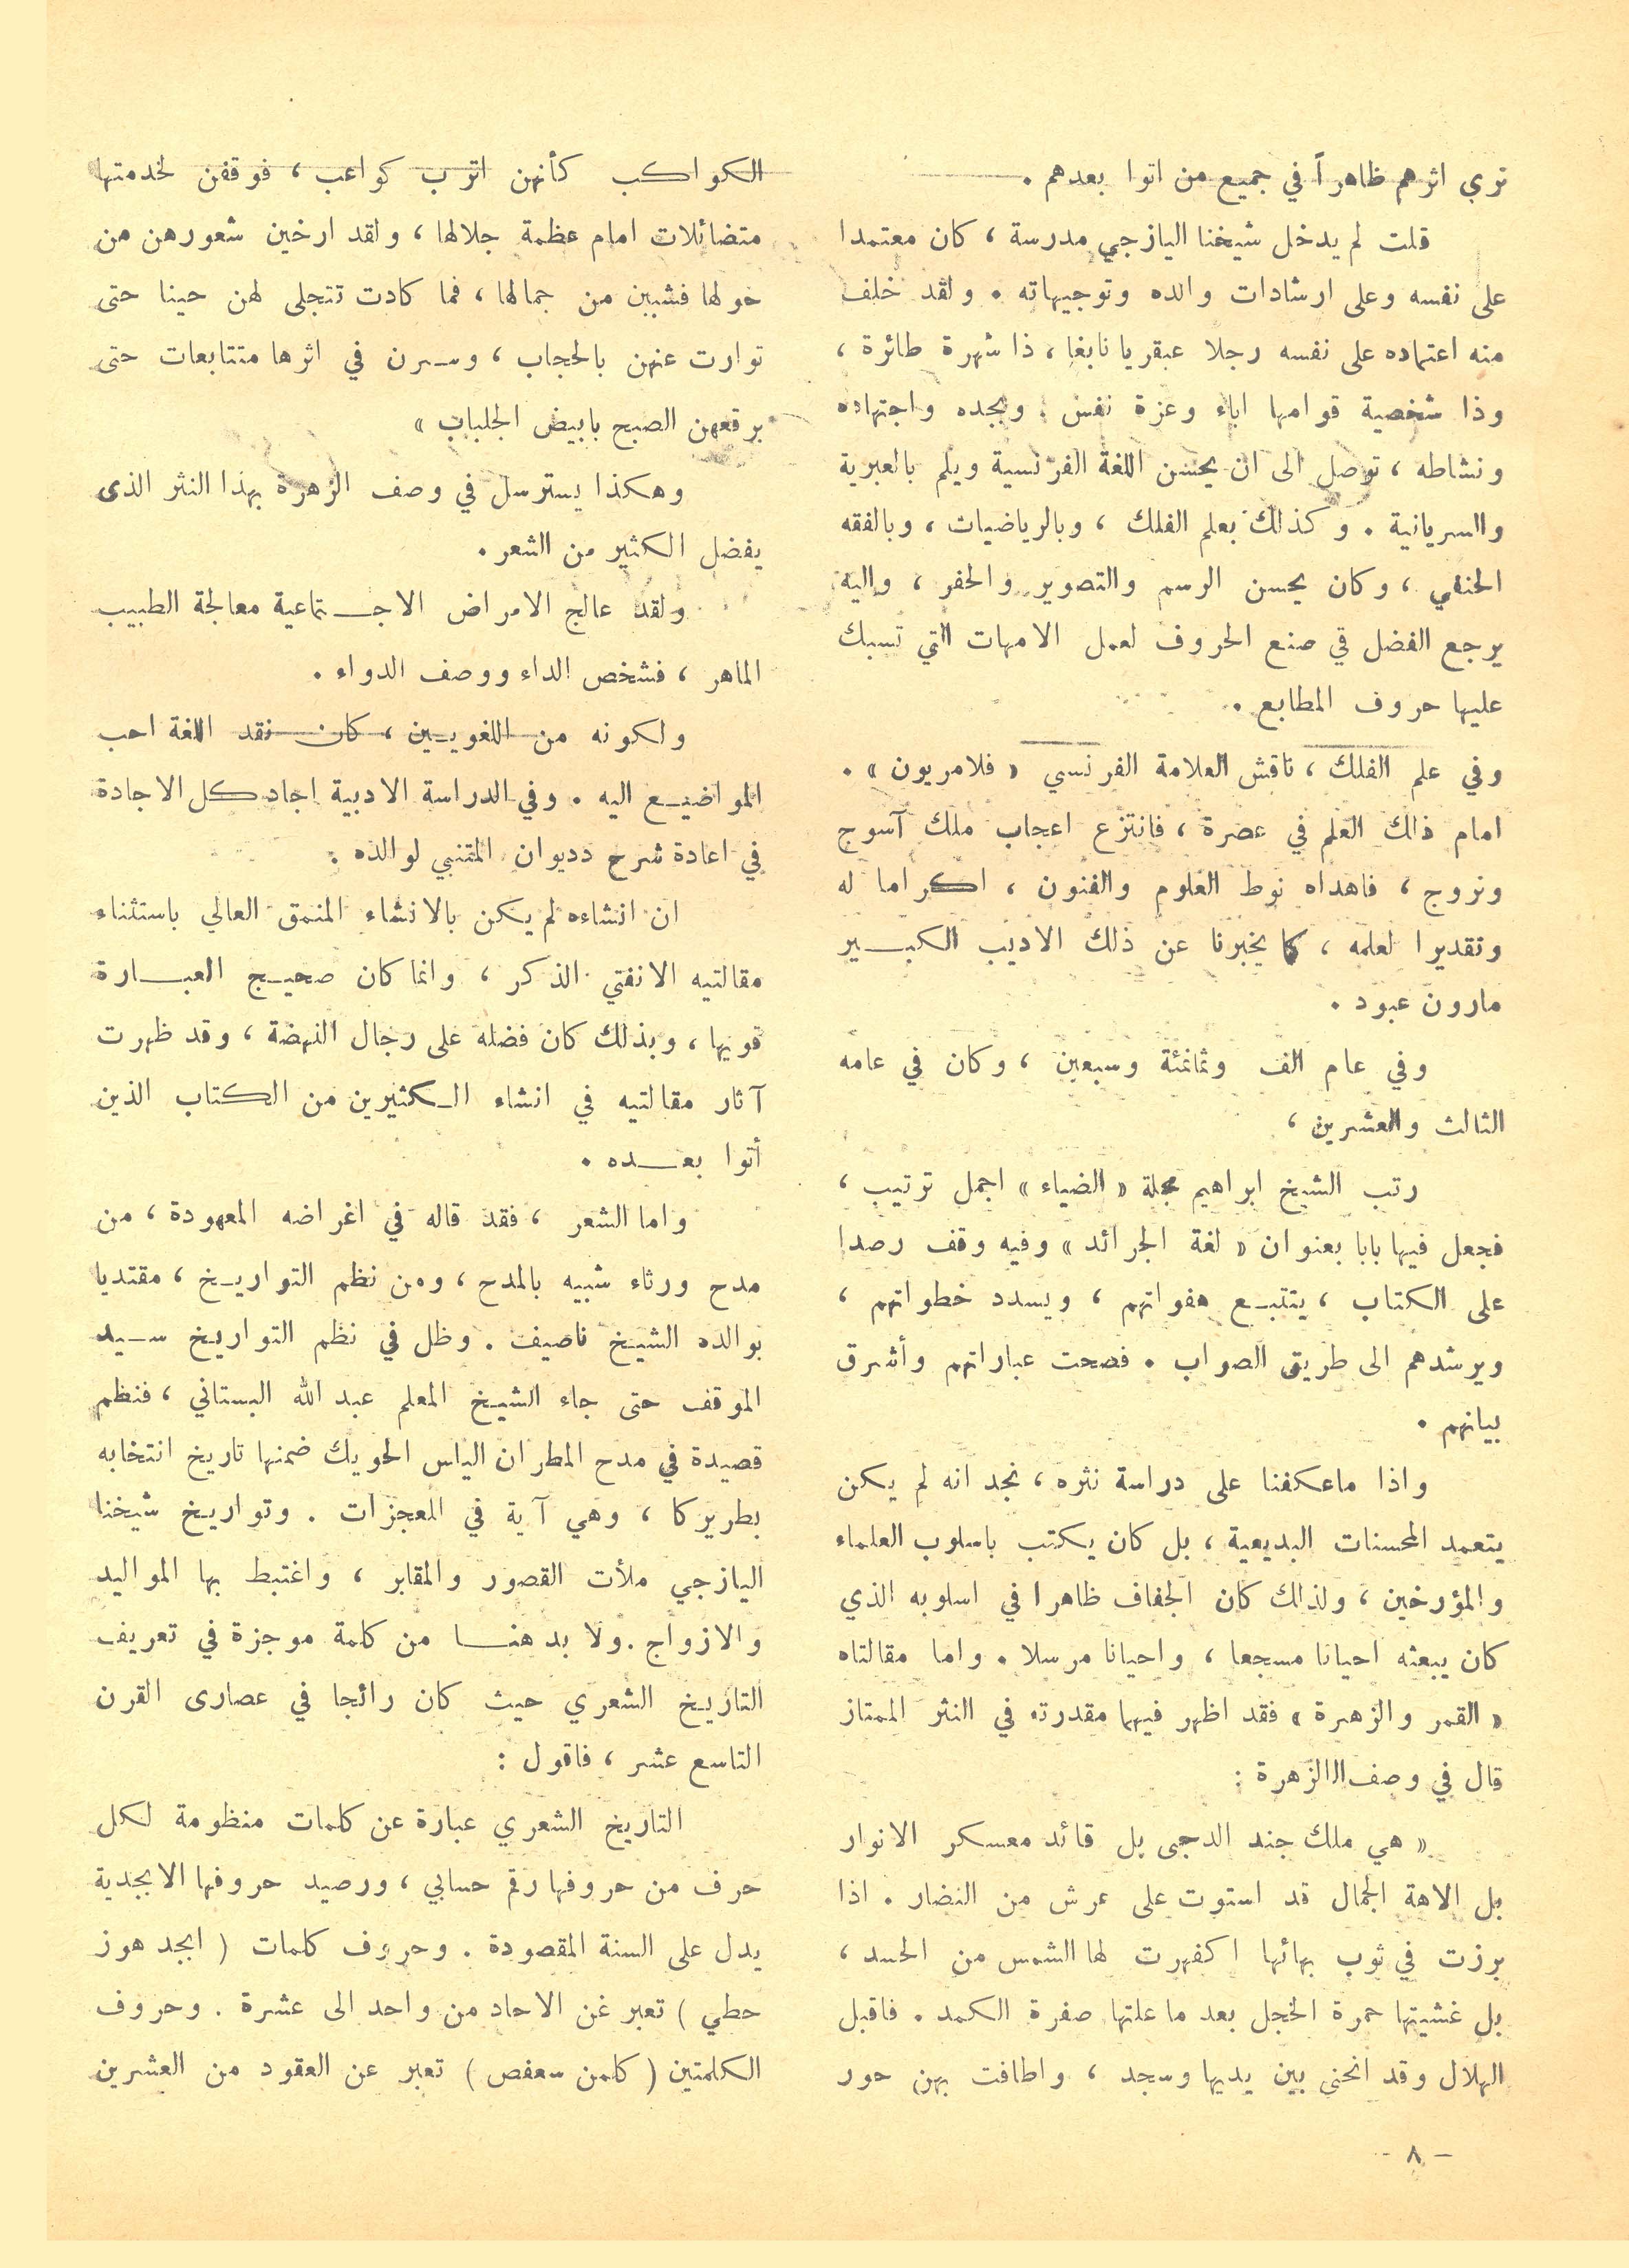 تري اثرهم ظاهراً في جميع من اتوا بعدهم .
قلت لم يدخل شيخنا اليازجي مدرسة ، كان معتمدا
على نفسه وعلى ارشادات والده وتوجيهاته . ولقد خلف
منه اعتماده على نفسه رجلا عبقريا نابغا ، ذا شهرة طائرة ،
وذا شخصية قوامها اباء وعزة نفس . وبجده واجتهاده
ونشاطه ، توصل الى ان يحسن اللغة الفرنسية ويلم بالعبرية
والسريانية . وكذلك بعلم الفلك ، وبالرياضيات ، وبالفقه
الحنفي ، وكان يحسن الرسم والتصوير والحفر ، واليه
يرجع الفضل في صنع الحروف لعمل الامهات التي تسبك
عليها حروف المطابع .
وفي علم الفلك ، ناقش العلامة الفرنسي « فلامريون » .
امام ذلك العلم في عصرة ، فانتزع اعجاب ملك آسوج
ونروج ، فاهداه نوط العلوم والفنون ، اكراما له
وتقديرا لعلمه ، كما يخبرنا عن ذلك الاديب الكبير
مارون عبود .
وفي عام الف وثمانمئة وسبعين ، وكان في عامه
الثالث والعشرين ،
رتب الشيخ ابراهيم مجلة « الضياء » اجمل ترتيب ،
فجعل فيها بابا بعنوان « لغة الجرائد » وفيه وقف رصدا
على الكتاب ، يتتبع هفواتهم ، ويسدد خطواتهم ،
ويرشدهم الى طريق الصواب . فصحت عباراتهم وأشرق
بيانهم .
واذا ماعكفنا على دراسة نثره ، نجد انه لم يكن
يتعمد المحسنات البديعية ، بل كان يكتب باسلوب العلماء
والمؤرخين ، ولذلك كان الجفاف ظاهرا في اسلوبه الذي
كان يبعثه احيانا مسجعا ، واحيانا مرسلا . واما مقالتاه
« القمر والزهرة » فقد اظهر فيهما مقدرته في النثر الممتاز
قال في وصف االزهرة :
« هي ملك جند الدجى بل قائد معسكر الانوار
بل الاهة الجمال قد استوت على عرش من النضار . اذا
برزت في ثوب بهائها اكفهرت لها الشمس من الحسد ،
بل غشيتها حمرة الخجل بعد ما علتها صفرة الكمد . فاقبل
الهلال وقد انحنى بين يديها وسجد ، واطافت بهن حور
الكواكب كأنهن اترب كواعب ، فوقفن لخدمتها
متضائلات امام عظمة جلالها ، ولقد ارخين شعورهن من
حولها فشببن من جمالها ، فما كادت تتجلى لهن حينا حتى
توارت عنهن بالحجاب ، وسرن في اثرها متتابعات حتى
برقعهن الصبح بابيض الجلباب »
وهكذا يسترسل في وصف الزهرة بهذا النثر الذى
يفضل الكثير من الشعر .
ولقد عالج الامراض الاجتماعية معالجة الطبيب
الماهر ، فشخص الداء ووصف الدواء .
ولكونه من اللغويين ، كان نقد اللغة احب
المواضيع اليه . وفي الدراسة الادبية اجاد كل الاجادة
في اعادة شرح دديوان المتنبي لوالده .
ان انشاءه لم يكن بالانشاء المنمق العالي باستثناء
مقالتيه الانفتي الذكر ، وانما كان صحيح العبارة
قويها ، وبذلك كان فضله على رجال النهضة ، وقد ظهرت
آثار مقالتيه في انشاء الكثيرين من الكتاب الذين
أتوا بعده .
واما الشعر ، فقد قاله في اغراضه المعهودة ، من
مدح ورثاء شبيه بالمدح ، ومن نظم التواريخ ، مقتديا
بوالده الشيخ ناصيف . وظل في نظم التواريخ سيد
الموقف حتى جاء الشيخ المعلم عبد الله البستاني ، فنظم
قصيدة في مدح المطران الياس الحويك ضمنها تاريخ انتخابه
بطريركا ، وهي آية في المعجزات . وتواريخ شيخنا
اليازجي ملأت القصور والمقابر ، واغتبط بها المواليد
والازواج . ولا بد هنا من كلمة موجزة في تعريف
التاريخ الشعري حيث كان رائجا في عصارى القرن
التاسع عشر ، فاقول :
التاريخ الشعري عبارة عن كلمات منظومة لكل
حرف من حروفها رقم حسابي ، ورصيد حروفها الابجدية
يدل على السنة المقصودة . وحروف كلمات ( ابجد هوز
حطي ) تعبر عن الاحاد من واحد الى عشرة . وحروف
الكلمتين ( كلمن سعفص ) تعبر عن العقود من العشرين
- ٨ -